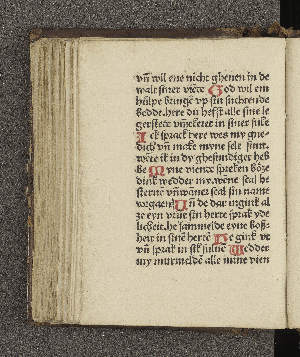 vñ wil ene nicht gheuen in de
walt siner viēte God wil em
hulpe bringē vp sin suchtende
bedde.here du hefst alle sine le
gerstete vm̄ekeret in siner suke
Ick sprack here wes my gne-
dich vñ make myne sele sunt.
wēte ik in dy ghesundiget heb
be Myne viende spreken böze
dink wedder my.wēne seal he
steruē vñ wānet seal sin name
vorgaen Uñ de dar ingink al
ze eyn vrüe sin herte sprak yde
licheit.he sammelde eyne boß-
heit in sinē hertē He gink ve
vñ sprack in slk suluē Wedder
my murmeldē alle mine vien